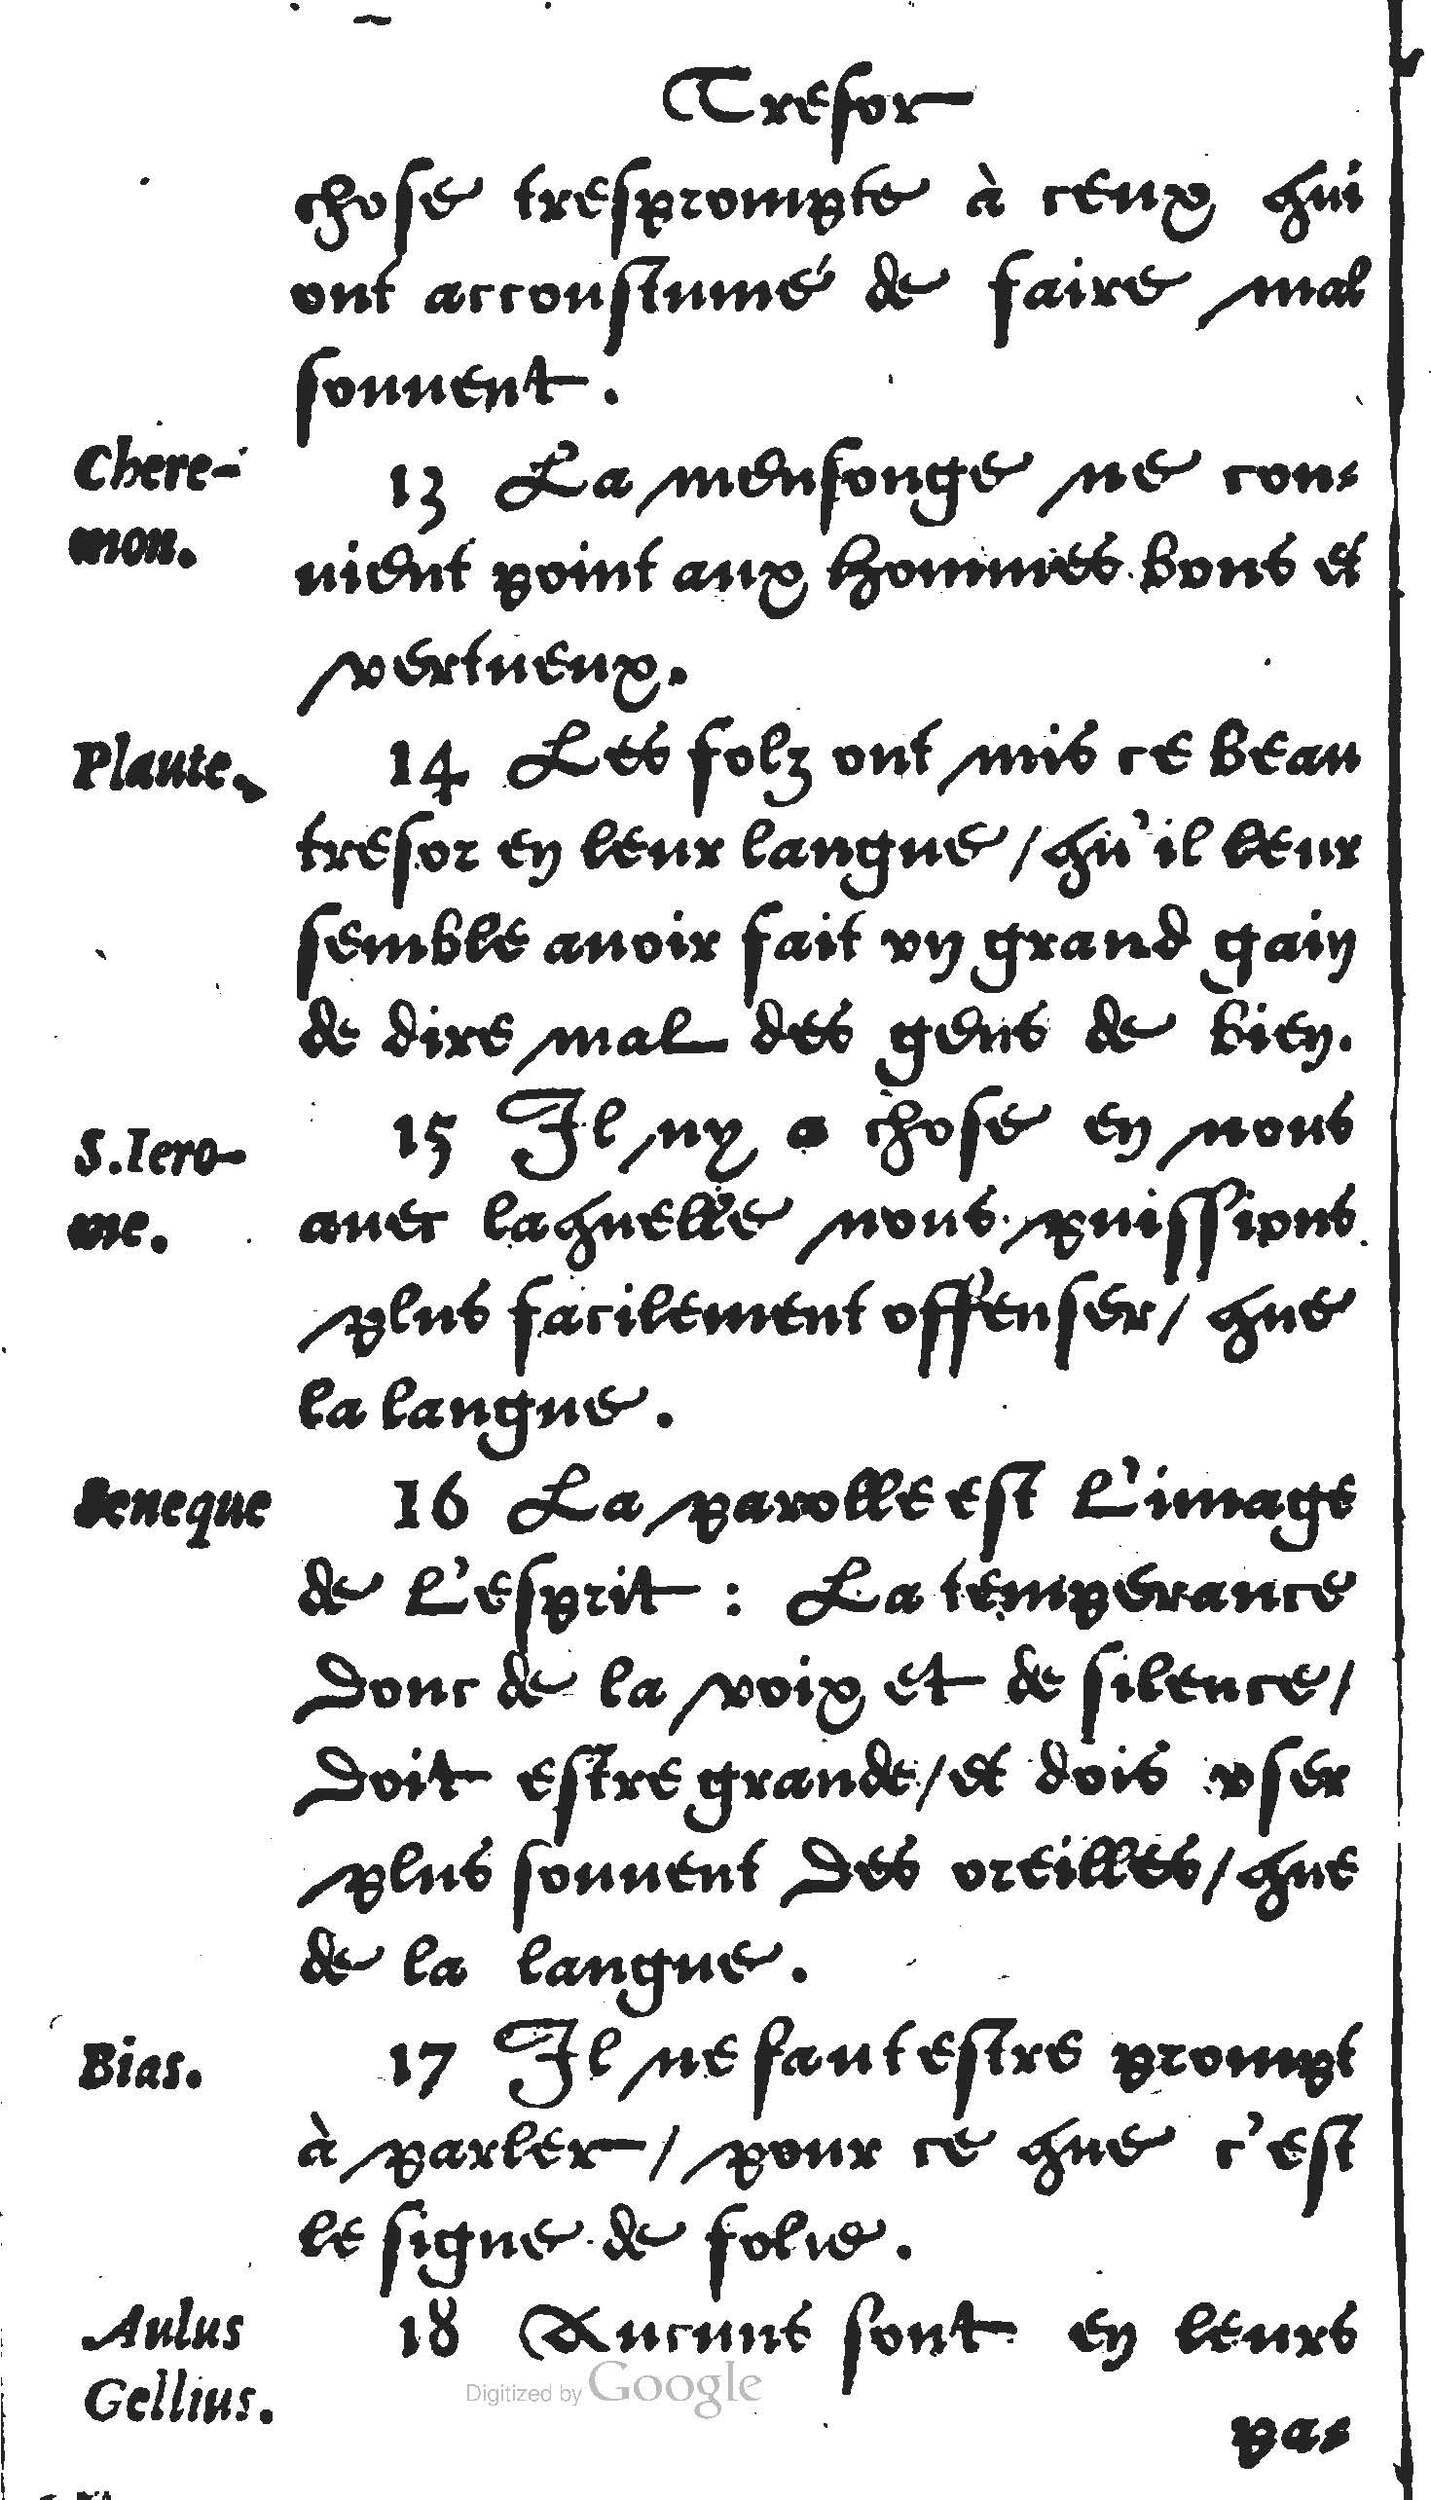 Tresor
chose tresprompte à ceux qui
ont accoustumé de faire mal
souuent.
Chere-
mon.
13 La mensonge ne con-
uient point aux hommes bons et
vertueux.
Plaute.
14 Les folz ont mis ce beau
tresor en leur langue / qu'il leur
semble auoir fait vn grand gain
de dire mal des gens de bien.
S. Iero-
me.
15 Il ny a chose en nous
auec laquelle nous puissions
plus facilement offenser / que
la langue.
Seneque
16 La parolle est l'image
de l'esprit : La temperance
donc de la voix et de silence /
doit estre grande / et dois vser
plus souuent des oreilles / que
de la langue.
Bias.
17 Il ne faut estre prompt
à parler / pour ce que c'est
le signe de folie.
Aulus
Gellius.
18 Aucuns sont en leurs
pa-
Digitized by Google